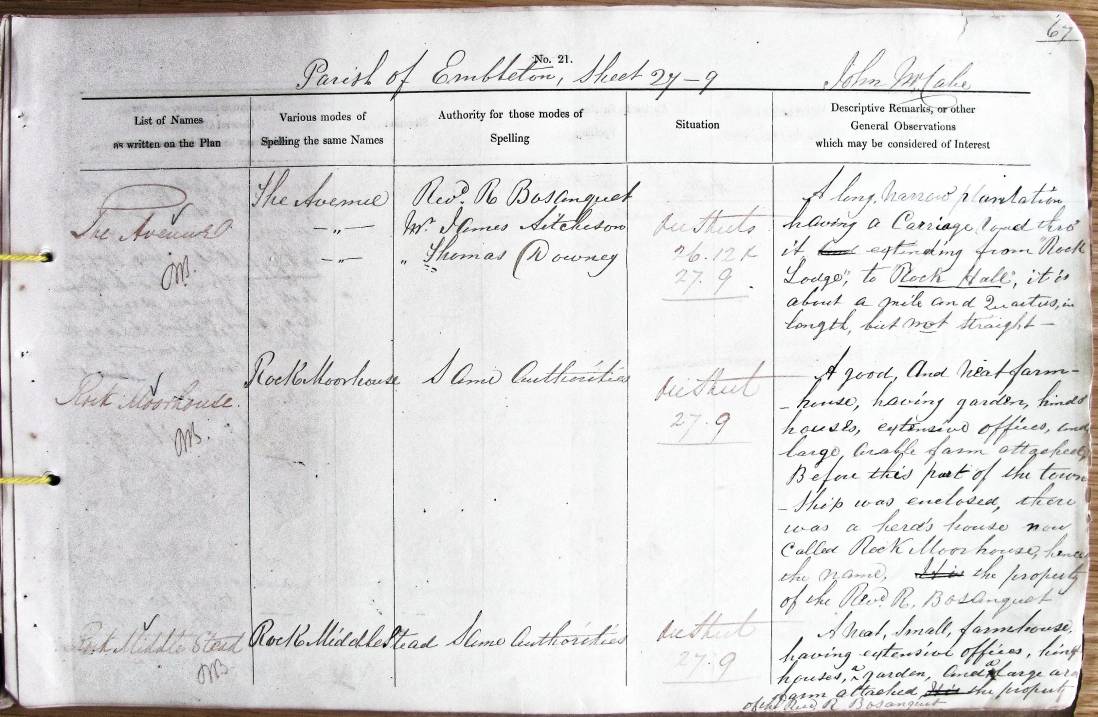 67
No. 21.
Parish of Embleton, Sheet 27-9
John McCabe
List of Names
as written on the Plan
Various modes of
Spelling the same Names
Authority for those modes of
Spelling
Situation
Descriptive Remarks, or other
General Observations
which may be considered of Interest
The Avenue
The Avenue
-„-
-„-
Revd. R Bosanquet
Mr. James Aitcheson
„ Thomas Downey
On Sheets
26.12 &
27.9.
A long, narrow plantation
having a Carriage road thro'
it extending from "Rock
Lodge", to "Rock Hall", it is
about a mile and Quarter, in
length, but not straight -
Rock Moorhouse.
Rock Moorhouse
Same Authorities
On Sheet
27.9
A good, And neat farm-
-house, having garden, hinds
houses, extensive offices, and
large, arable farm attached,
Before this part of the town
-ship was enclosed, there
was a herd's house now
Called Rock Moorhouse, hence
the name, It is the property
of the Revd. R. Bosanquet
Rock Middle Stead
Rock Middle Stead
Same Authorities
On Sheet
27.9
A neat, small, farmhouse,
having extensive offices, hinds
houses, a garden, and a large
farm attached It is the property
of the Revd R Bosanquet